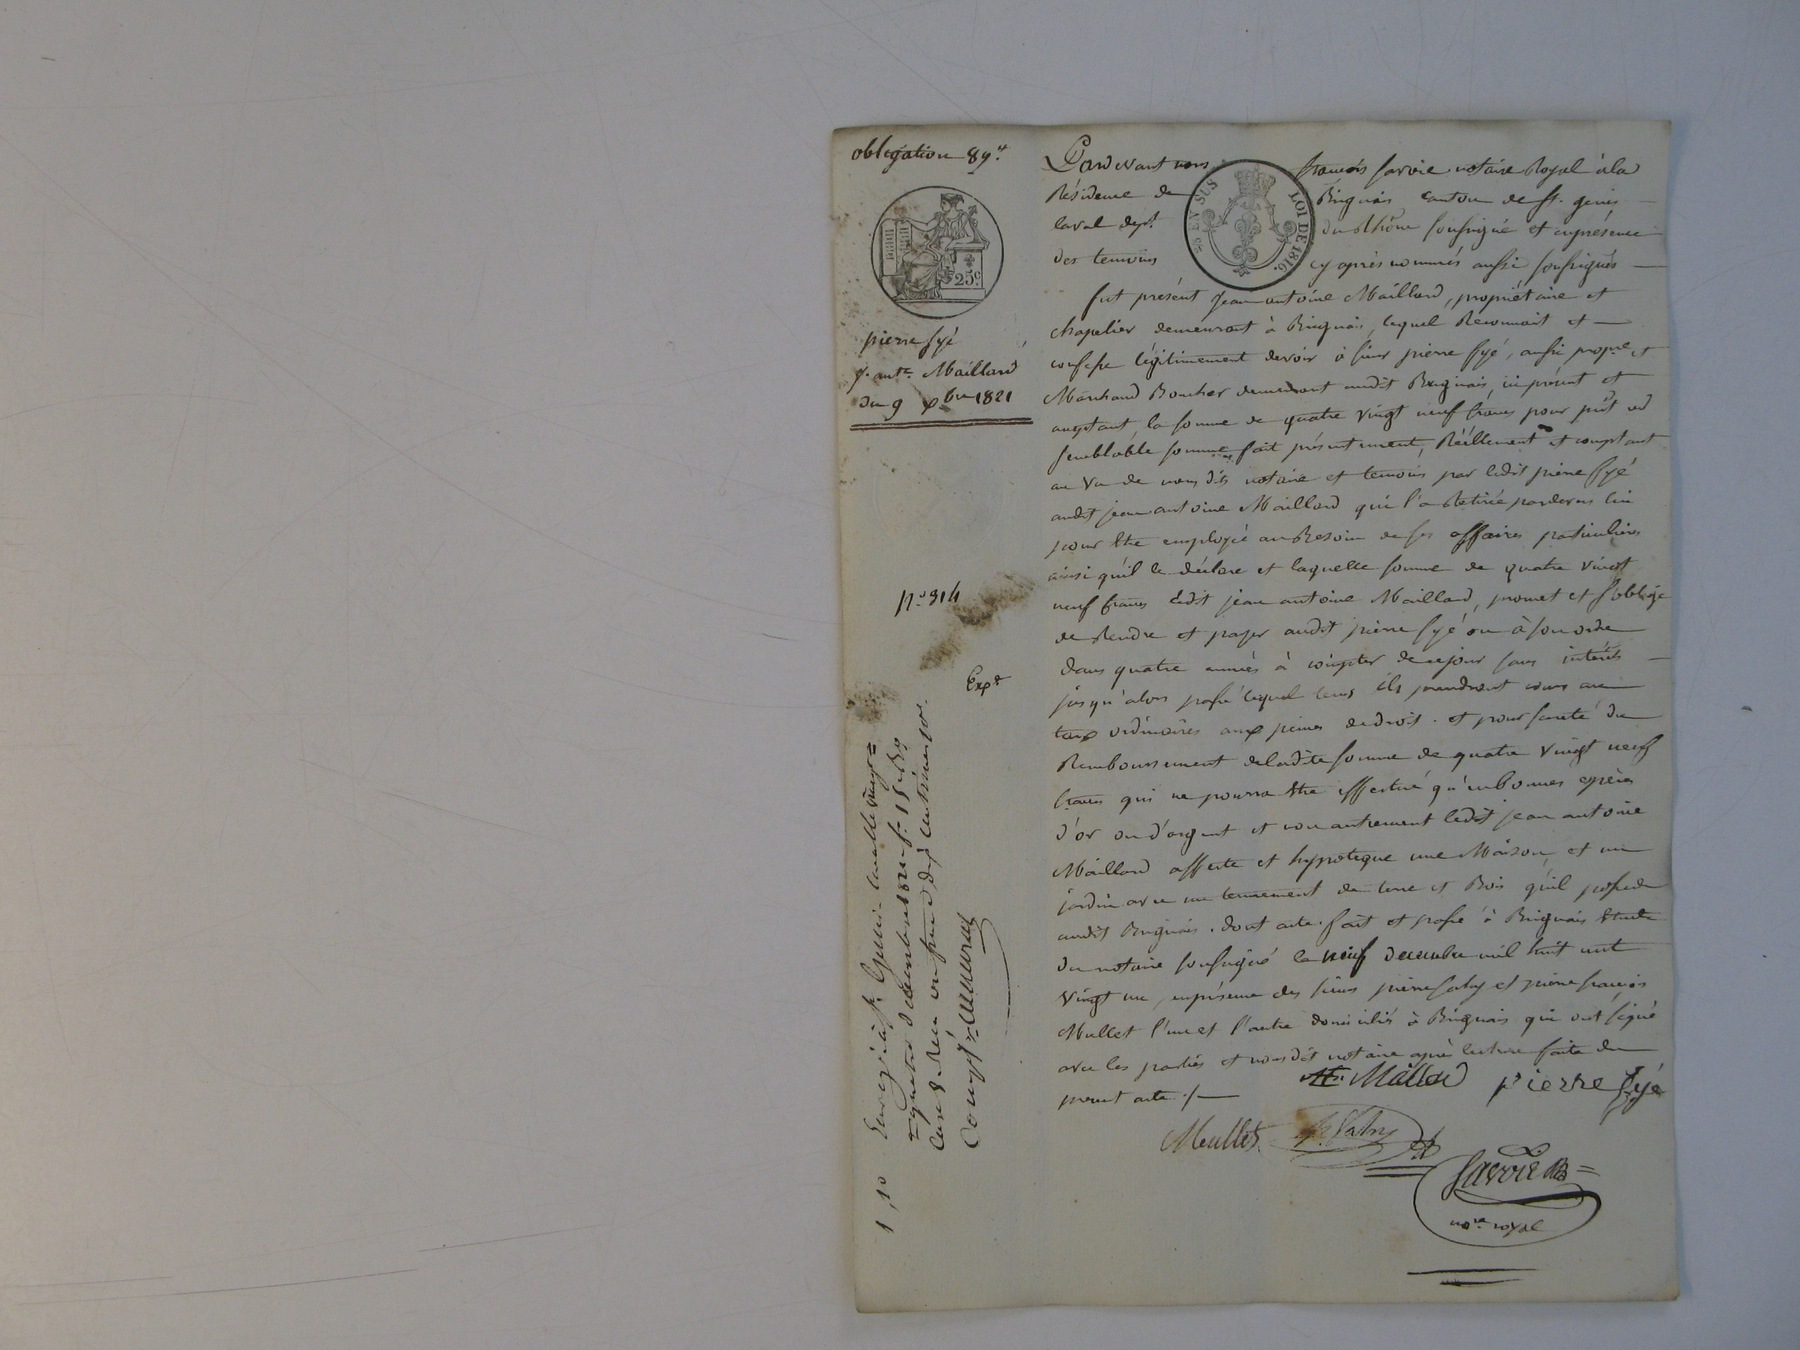 obligation 89.#
25c.
pierre fyé
J. ant.ne Maillard
du 9 Xbre 1821
N.o 314
Exp.é
Pardevant nous françois Savoie notaire Royal à la
EN SUS
LOI DE 1816.
Résidence de Brignais canton de St. genis
laval dep.t du Rhône soussigné et en présence
des temoins cy après nommés aussi soussignés
fut présent Jean antoine Maillard, propriétaire et
chapelier demeurant à Brignais, lequel Reconnait et
confesse légitimement devoir à sieur pierre fyé, aussi propre. et
Marchand Boucher demeurant audit Brignais, ici présent et
acceptant, la somme de quatre vingt neuf francs pour prêt de
semblable somme fait présentement, Réellement et comptant
au vu de nous dits notaire et temoins par ledit pierre fyé
audit jean antoine Maillard qui l'a Retirée pardevers lui
pour être employé au Besoin de ses affaires particulières
ainsi qu'il le déclare et laquelle somme de quatre vingt
neuf francs ledit jean antoine Maillard, promet et s'oblige
de Rendre et payer audit pierre fyé ou à son ordre
dans quatre années à compter de ce jour sans intérêts
jusqu'alors passé lequel tems ils prendront cours au
taux ordinaires aux peines de droit. et pour sureté du
Remboursement de ladite somme de quatre vingt neuf
francs qui ne pourra être effectué qu'en bonnes espèces
d'or ou d'argent et non autrement ledit jean antoine
Maillard affecte et hypoteque une Maison, et un
jardin avec un tennement de terre et Bois qu'il possede
audit Brignais. dont acte. fait et passé à Brignais Etude
du notaire soussigné le neuf decembre mil huit cent
vingt un, en présence des sieurs pierre et pierre françois
Mullet l'un et l'autre domiciliés à Brignais qui ont signé
avec les parties et nous dit notaire après lecture faite du
présent acte ./.
Maillard pierre fyé
Meullet
Savoie
no.re royal
1,10 Enregistré à St. Genis-Laval le vingt =
= quatre décembre 1821 f.
Case 8 Reçu un franc dix centimes